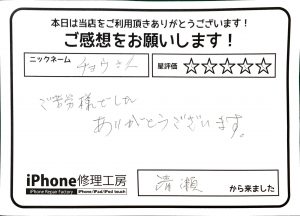 本日は当店をご利用頂きありがとうございます！
ご感想をお願いします！
ニックネーム
チョウさん
星評価 ☆☆☆☆☆
ご苦労様でした
ありがとうございます。
iPhone修理工房
iPhone Repair Factory iPhone/iPad/iPod touch
清瀬 から来ました